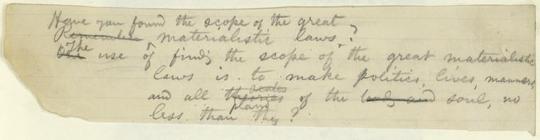 Have you found the scope of the great
materialistic laws?
The use of findg the scope of the great materialistic
laws is to make politics, lives, manners,
and all theories of the body and soul, no
less than they?